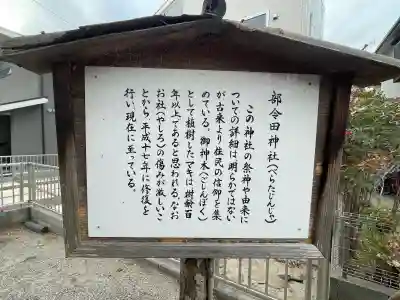 部令田神社（べらたじんじゃ）
この神社の祭神や由来に
ついての詳細は明らかではない
が古来より住民の信仰を集
めている。御神木（ごしんぼく）
として植樹したマキは樹齢百
年以上であると思われる。なお
お社（やしろ）の傷みが激しいこ
とから、平成十七年に修復を
行い、現在に至っている。